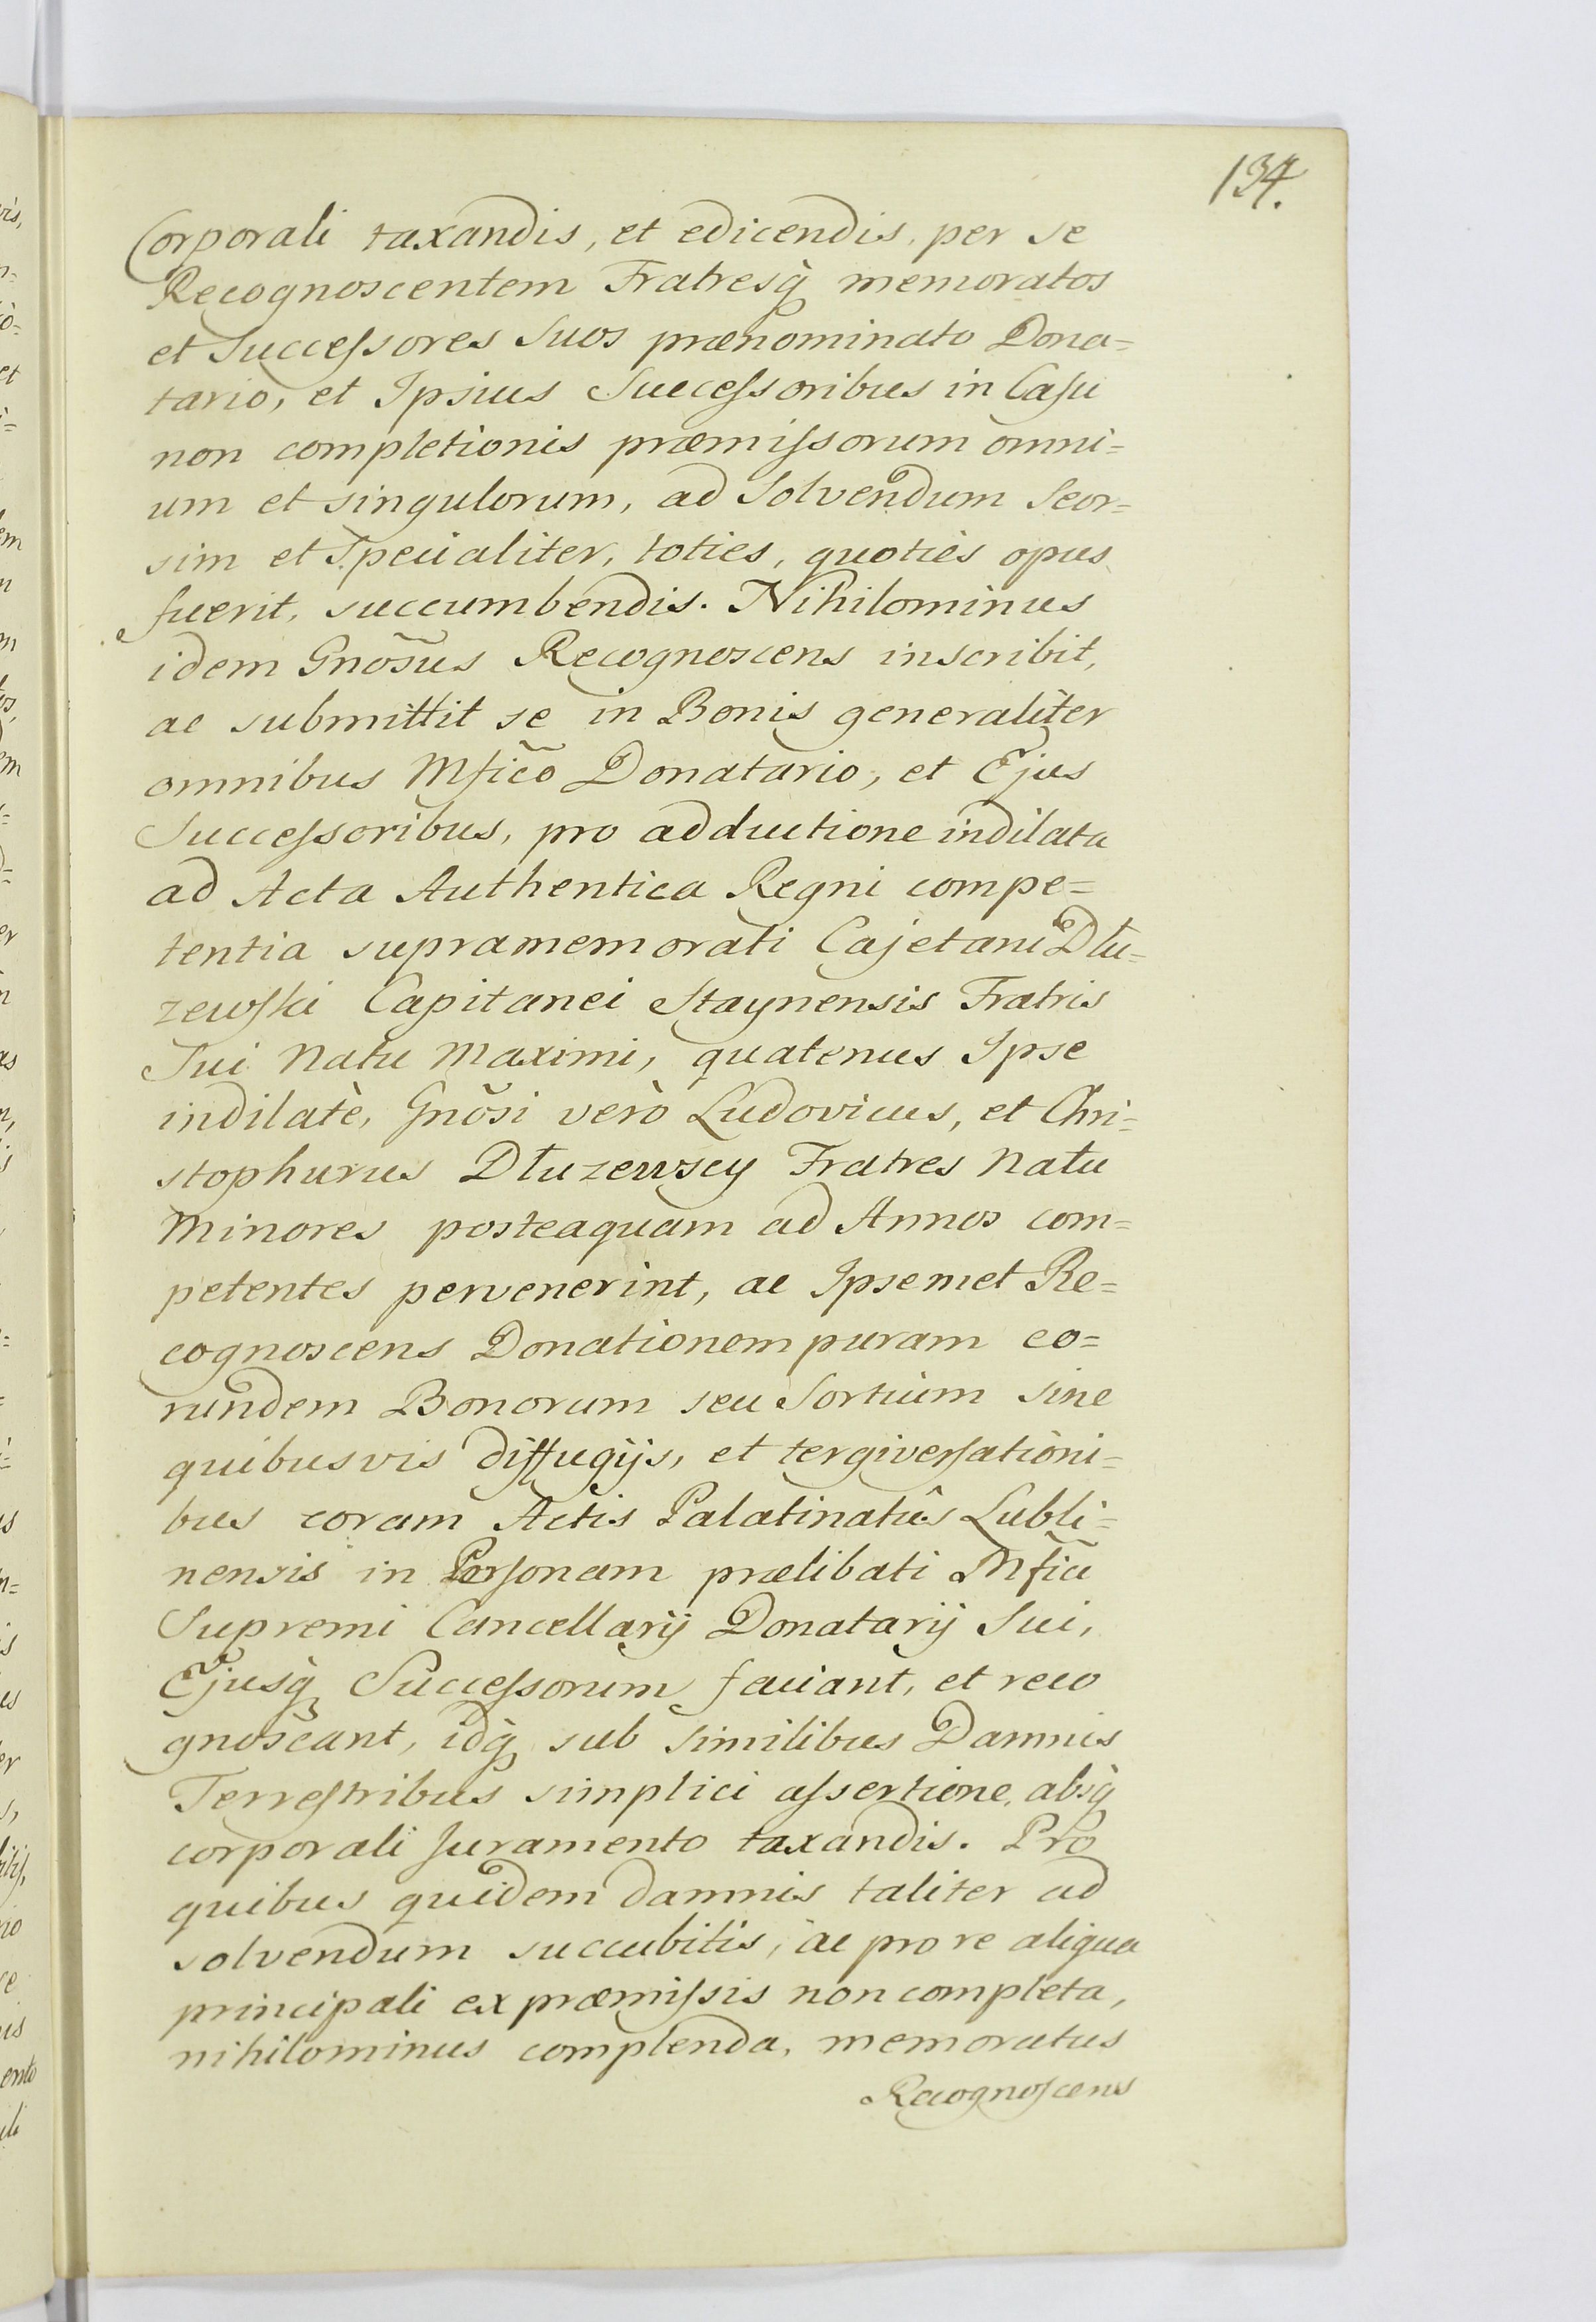 134.
Corporali taxandis, et edicendis, per se
Recognoscentem Fratresq̀ memoratos
et Succeſsores Suos prænominato Dona=
tario, et Ipsius Succeſsoribus in Caſu
non completionis præmiſsorum omni=
um et singulorum, ad Solvendum Seor=
sim et Specialiter, toties, quoties opus
fuerit, succumbendis. Nihilominus
idem Gnõsus Recognoscens inscribit,
ac submittit se in Bonis generaliter
omnibus Mficõ Donatario, et Ejus
Succeſsoribus, pro adductione indilata
ad Acta Authentica Regni compe=
tentia supramemorati Cajetani Dłu=
zewſki Capitanei Staynensis Fratris
Sui Natu Maximi, quatenus Ipse
indilatè, Gnõsi verò Ludovicus, et Chri=
stophurus Dłuzewscy Fratres Natu
Minores posteaquam ad Annos com=
petentes pervenerint, ac Ipsemet Re=
cognoscens Donationem puram eo=
rundem Bonorum seu Sortium sine
quibusvis diffugijs, et tergiverſationi=
bus coram Actis Palatinatûs Lubli=
nensis in Perſonam prælibati Mfici
Supremi Cancellarij Donatarij Sui,
Ejusq̀ Succeſsorum faciant, et reco
gnoscant, idq̀ sub similibus Damnis
Terreſtribus simplici aſsertione, absq̀
corporali Juramento taxandis. Pro
quibus quidem damnis taliter ad
solvendum succubitis, ac pro re aliqua
principali ex præmiſsis non completa,
nihilominus complenda, memoratus
Recognoſcens